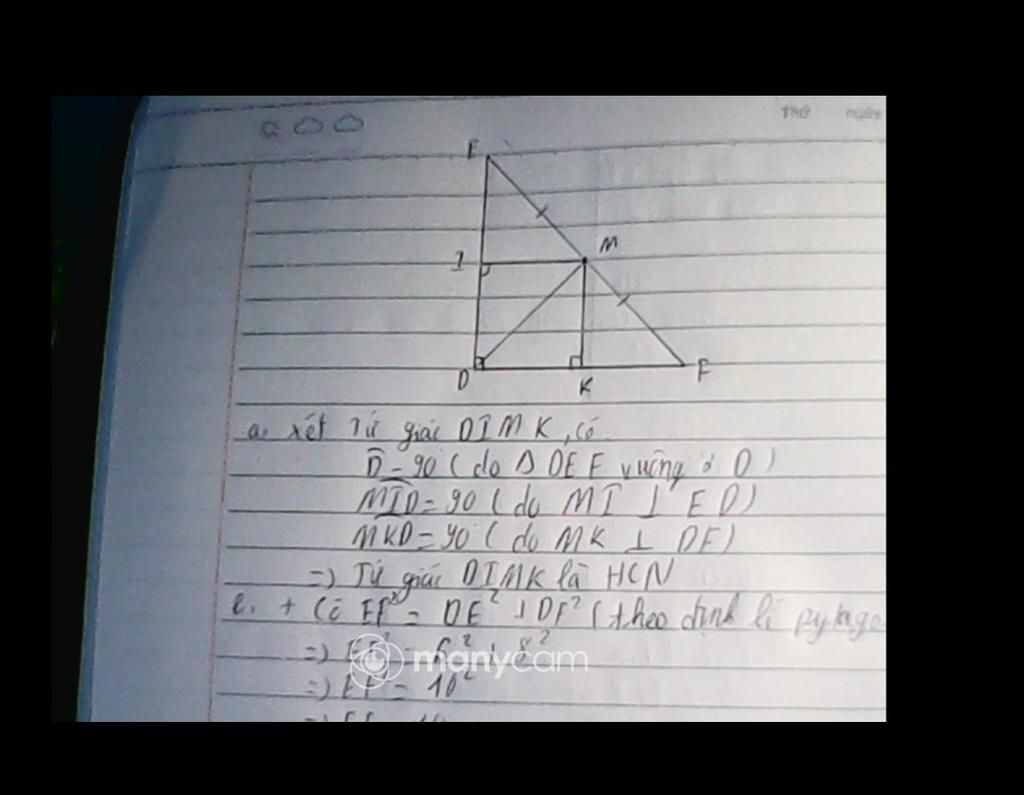 E
M
I
D
K
F
a. xét Tứ giác DIMK, có:
D̂ = 90 ( do Δ DEF vuông ở D )
MID = 90 ( do MI ⊥ ED )
MKD = 90 ( do MK ⊥ DF )
=) Tứ giác DIMK là HCN
+ Có EF² = DE² + DF² ( theo định lí pytago
=) EF² = 6² + 8²
=) EF² = 10²
manycam